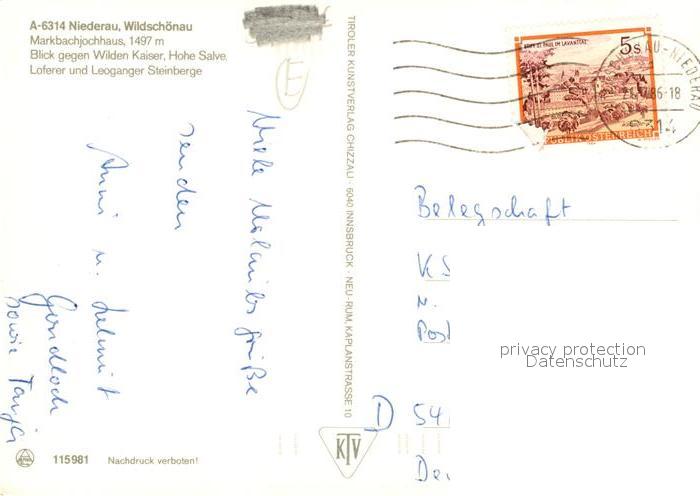 A-6314 Niederau, Wildschönau
Markbachjochhaus, 1497 m
Blick gegen Wilden Kaiser, Hohe Salve,
Loferer und Leoganger Steinberge
Viele Urlaubsgrüße
senden
Anni u. Helmut
sowie Tanja
115981 Nachdruck verboten!
TIROLER KUNSTVERLAG CHIZZALI · 6040 INNSBRUCK - NEU-RUM, KAPLANSTRASSE 10
KTV
STIFT ST. PAUL IM LAVANTTAL
5 S
REPUBLIK ÖSTERREICH
AU-NIEDERAU
86-18
Belegschaft
KS
z.
Post
D 54
privacy protection
Datenschutz